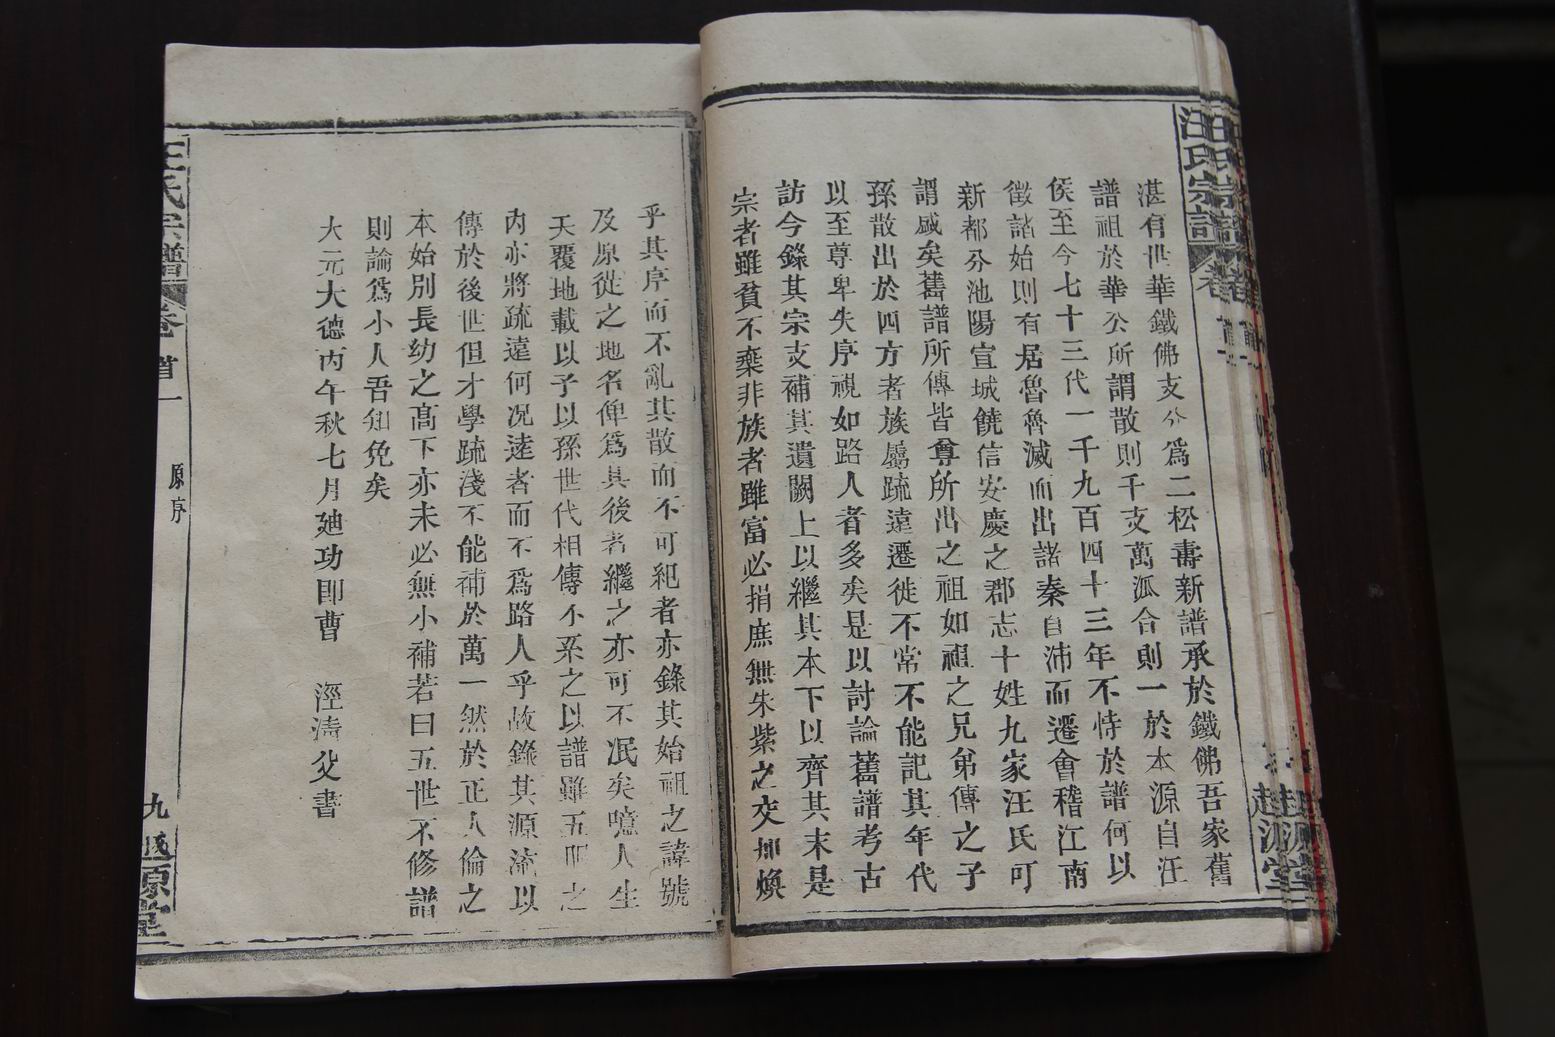 汪氏宗譜
湛有世華鐵佛支分爲二松壽新譜承於鐵佛吾家舊
譜祖於華公所謂散則千支萬派合則一於本源自汪
侯至今七十三代一千九百四十三年不恃於譜何以
徵諸始則有居魯魯滅而出諸秦自沛而遷會稽江南
新都分池陽宣城饒信安慶之郡志十姓九家汪氏可
謂盛矣舊譜所傳皆尊所出之祖如祖之兄弟傳之子
孫散出於四方者族屬疏遠遷徙不常不能記其年代
以至尊卑失序視如路人者多矣是以討論舊譜考古
訪今錄其宗支補其遺闕上以繼其本下以齊其末是
宗者雖貧不棄非族者雖富必捐庶無朱紫之交
乎其序而不亂其散而不可紀者亦錄其始祖之諱號
及原從之地名俾爲其後者繼之亦可不泯矣噫人生
天覆地載以子以孫世代相傳不系之以譜雖五服之
內亦將疏遠何况遠者而不爲路人乎故錄其源流以
傳於後世但才學疏淺不能補於萬一然於正人倫之
本始別長幼之高下亦未必無小補若曰五世不修譜
則論爲小人吾知免矣
大元大德丙午秋七月廸功郎曹 涇濤父書
汪氏宗譜 卷首一 原序 九 越源堂